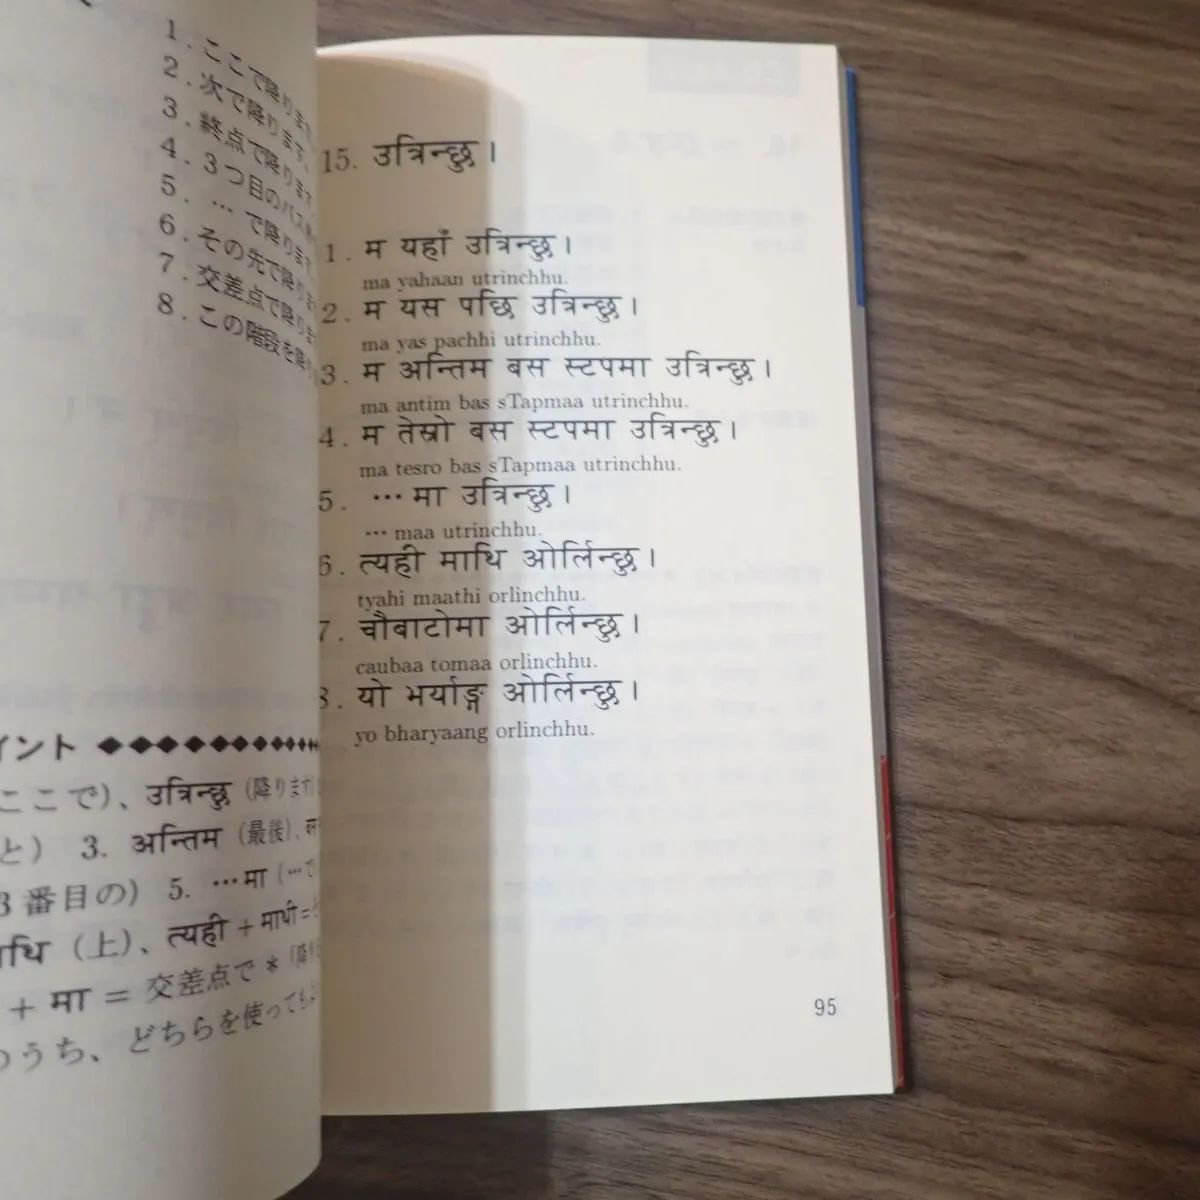 1. ここで降ります。
2. 次で降ります。
3. 終点で降ります。
4. 3つ目のバス
5. … で降ります。
6. その先で降りま
7. 交差点で降りま
8. この階段を降り
イント ◆◆◆◆◆◆◆◆◆◆◆◆◆◆
ここで)、उत्रिन्छु (降ります)
と) 3. अन्तिम (最後)、
3番目の) 5. …मा (…で
ाथि (上)、त्यही + माथी =
+ मा = 交差点で * 「降り
のうち、どちらを使っても
15. उत्रिन्छु।
1. म यहाँ उत्रिन्छु।
ma yahaan utrinchhu.
2. म यस पछि उत्रिन्छु।
ma yas pachhi utrinchhu.
3. म अन्तिम बस स्टपमा उत्रिन्छु।
ma antim bas sTapmaa utrinchhu.
4. म तेस्रो बस स्टपमा उत्रिन्छु।
ma tesro bas sTapmaa utrinchhu.
5. …मा उत्रिन्छु।
… maa utrinchhu.
6. त्यही माथि ओर्लिन्छु।
tyahi maathi orlinchhu.
7. चौबाटोमा ओर्लिन्छु।
caubaa tomaa orlinchhu.
8. यो भर्याङ्ग ओर्लिन्छु।
yo bharyaang orlinchhu.
95